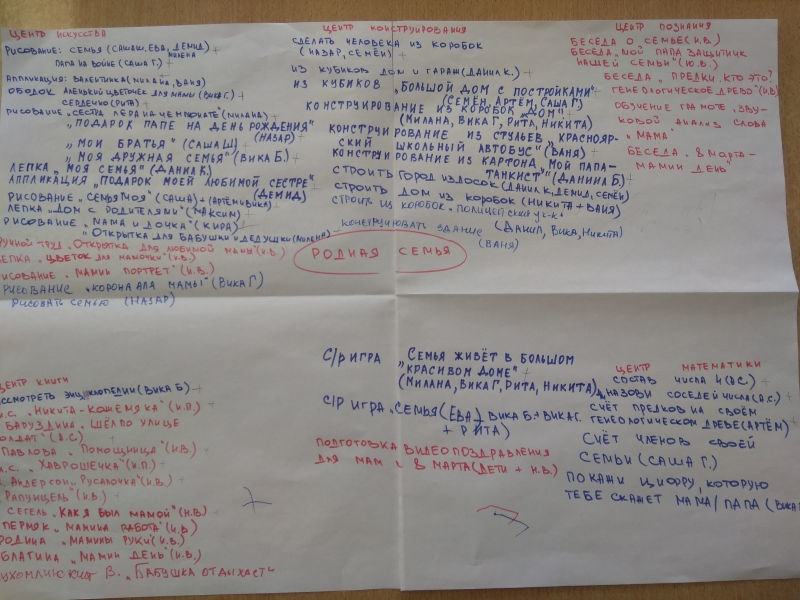 ЦЕНТР ИСКУССТВА
РИСОВАНИЕ: СЕМЬЯ (САШАШ, ЕВА, ДЕМИД) +
МИЛЕНА
ПАПА НА ВОЙНЕ (САША Г.) +
АППЛИКАЦИЯ: ВАЛЕНТИНКА (МИЛАНА, ВАНЯ)
ОБОДОК АЛЕНЬКИЙ ЦВЕТОЧЕК ДЛЯ МАМЫ (ВИКА Г.) +
СЕРДЕЧКО (РИТА)
РИСОВАНИЕ „СЕСТРА ЛЕРА НА ЧЕМПИОНАТЕ" (МИЛАНА)
„ПОДАРОК ПАПЕ НА ДЕНЬ РОЖДЕНИЯ"
(НАЗАР)
„МОИ БРАТЬЯ" (САША Ш)
„МОЯ ДРУЖНАЯ СЕМЬЯ" (ВИКА Б.)
ЛЕПКА „МОЯ СЕМЬЯ" (ДАНИЛ К.)
АППЛИКАЦИЯ „ПОДАРОК МОЕЙ ЛЮБИМОЙ СЕСТРЕ"
(ДЕМИД)
РИСОВАНИЕ „СЕМЬЯ МОЯ" (САША) + (АРТЁМ И ВИКА)
ЛЕПКА „ДОМ С РОДИТЕЛЯМИ" (МАКСИМ)
РИСОВАНИЕ „МАМА И ДОЧКА" (КИРА)
„ОТКРЫТКА ДЛЯ БАБУШКИ И ДЕДУШКИ (МИЛЕНА)
РУЧНОЙ ТРУД „ОТКРЫТКА ДЛЯ ЛЮБИМОЙ МАМЫ" (И.В.)
ЛЕПКА „ЦВЕТОК ДЛЯ МАМОЧКИ" (И.В.)
РИСОВАНИЕ „МАМИН ПОРТРЕТ" (И.В.)
РИСОВАНИЕ „КОРОНА ДЛЯ МАМЫ" (ВИКА Г)
РИСОВАТЬ СЕМЬЮ (НАЗАР)
ЦЕНТР КОНСТРУИРОВАНИЯ
СДЕЛАТЬ ЧЕЛОВЕКА ИЗ КОРОБОК
(НАЗАР, СЕМЁН)
ИЗ КУБИКОВ ДОМ И ГАРАЖ (ДАНИЛ К.)
ИЗ КУБИКОВ „БОЛЬШОЙ ДОМ С ПОСТРОЙКАМИ"
(СЕМЁН, АРТЁМ, САША Г)
КОНСТРУИРОВАНИЕ ИЗ КОРОБОК „ДОМ"
(МИЛАНА, ВИКА Г, РИТА, НИКИТА)
КОНСТРУИРОВАНИЕ ИЗ СТУЛЬЕВ „КРАСНОЯР-
СКИЙ ШКОЛЬНЫЙ АВТОБУС" (ВАНЯ)
КОНСТРУИРОВАНИЕ ИЗ КАРТОНА „МОЙ ПАПА-
ТАНКИСТ" (ДАНИИЛ Б.)
СТРОИТЬ ГОРОД ИЗ ДОСОК (ДАНИЛ К, ДЕМИД, СЕМЁН)
СТРОИТЬ ДОМ ИЗ КОРОБОК (НИКИТА + ВАНЯ)
СТРОИТЬ ИЗ КОРОБОК - ПОЛИЦЕЙСКИЙ УЧ-К
КОНСТРУИРОВАТЬ ЗДАНИЕ (ДАНИЛ, ВИКА, НИКИТА)
(ВАНЯ)
ЦЕНТР ПОЗНАНИЯ
БЕСЕДА О СЕМЬЕ (Н.В.)
БЕСЕДА „МОЙ ПАПА ЗАЩИТНИК
НАШЕЙ СЕМЬИ" (Ю.В.)
БЕСЕДА „ПРЕДКИ, КТО ЭТО?"
ГЕНЕОЛОГИЧЕСКОЕ ДРЕВО" (И.В)
ОБУЧЕНИЕ ГРАМОТЕ „ЗВУ-
КОВОЙ АНАЛИЗ СЛОВА
„МАМА"
БЕСЕДА „8 МАРТА-
МАМИН ДЕНЬ"
РОДНАЯ СЕМЬЯ
ЦЕНТР КНИГИ
РАССМОТРЕТЬ ЭНЦИКЛОПЕДИИ (ВИКА Б)
Н.С. „НИКИТА-КОЖЕМЯКА" (И.П.)
БАРУЗДИНА „ШЁЛ ПО УЛИЦЕ
СОЛДАТ"
ПАВЛОВА „ПОМОЩНИЦА" (И.В.)
„ХАВРОШЕЧКА" (И.П.)
АНДЕРСОН „РУСАЛОЧКА" (И.В.)
РАПУНЦЕЛЬ" (И.В.)
СЕГЕЛЬ „КАК Я БЫЛ МАМОЙ" (Н.В.)
ПЕРМЯК „МАМИНА РАБОТА" (И.В)
РОДИНА „МАМИНЫ РУКИ" (И.В.)
БЛАГИНА „МАМИН ДЕНЬ" (И.В.)
СУХОМЛИНСКИЙ В. „БАБУШКА ОТДЫХАЕТ"
С/Р ИГРА „СЕМЬЯ ЖИВЁТ В БОЛЬШОМ
КРАСИВОМ ДОМЕ"
(МИЛАНА, ВИКА Г, РИТА, НИКИТА)
С/Р ИГРА „СЕМЬЯ (ЕВА) ВИКА Б. + ВИКА Г.
+ РИТА)
ПОДГОТОВКА ВИДЕОПОЗДРАВЛЕНИЯ
ДЛЯ МАМ С 8 МАРТА (ДЕТИ + Н.В.)
ЦЕНТР МАТЕМАТИКИ
СОСТАВ ЧИСЛА 4
НАЗОВИ СОСЕДЕЙ ЧИСЛА
СЧЁТ ПРЕДКОВ НА СВОЁМ
ГЕНЕОЛОГИЧЕСКОМ ДРЕВЕ (АРТЁМ)
СЧЁТ ЧЛЕНОВ СВОЕЙ
СЕМЬИ (САША Г.)
ПОКАЖИ ЦИФРУ, КОТОРУЮ
ТЕБЕ СКАЖЕТ МАМА/ПАПА (ВИКА